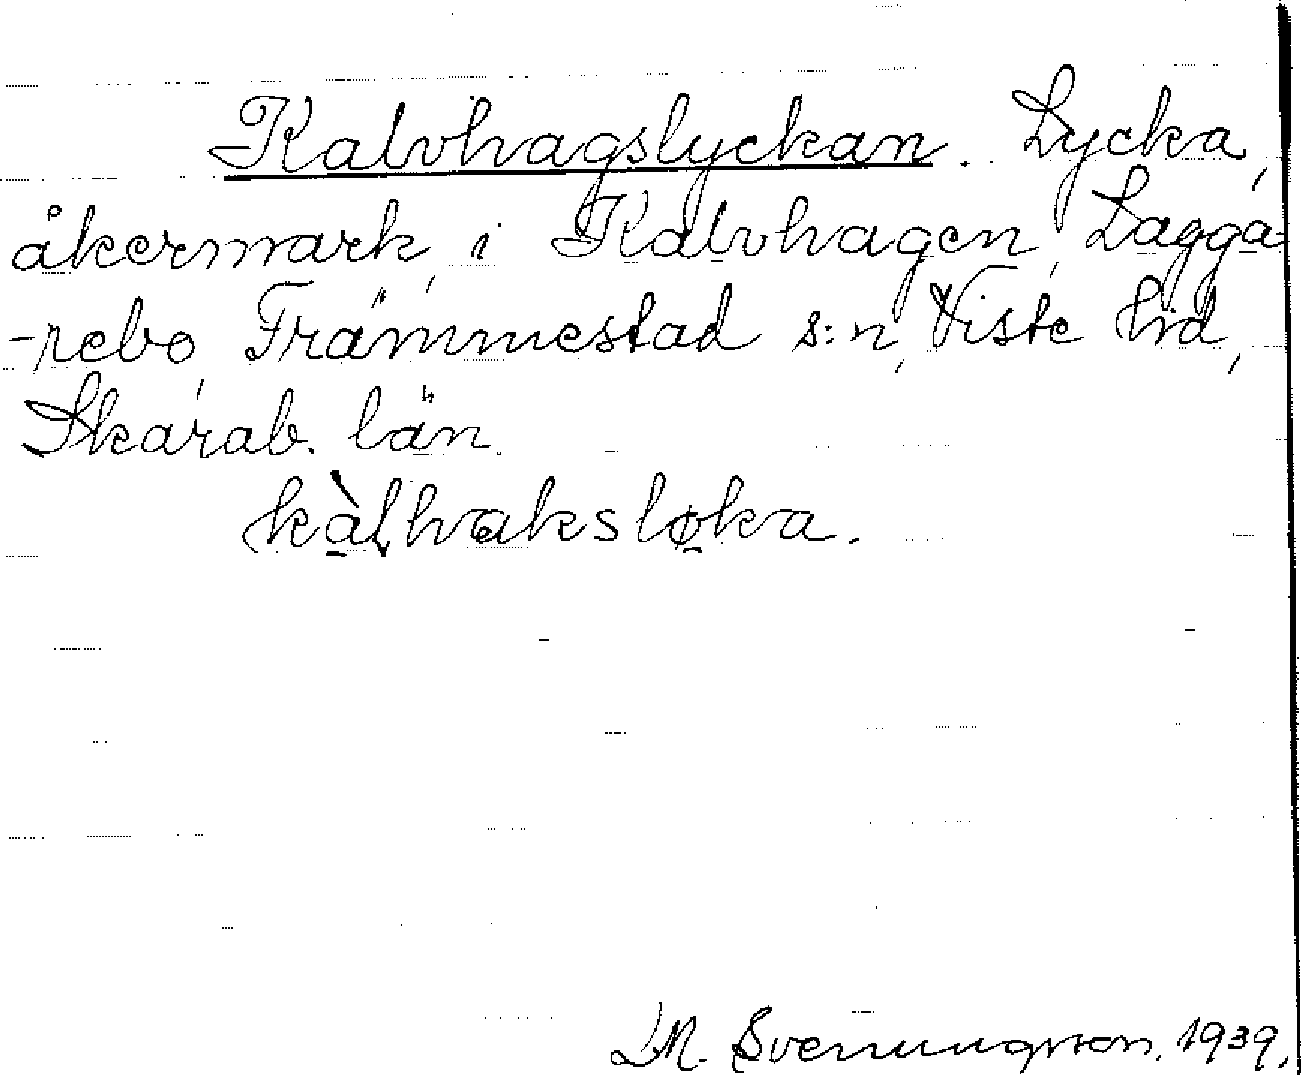 Kalvhagslyckan. Lycka,
åkermark, i Kalvhagen, Lagga-
-rebo, Främmestad s:n, Viste hd,
Skarab. län.
kàlhvaksløka.
D.M. Svenungsson. 1939.